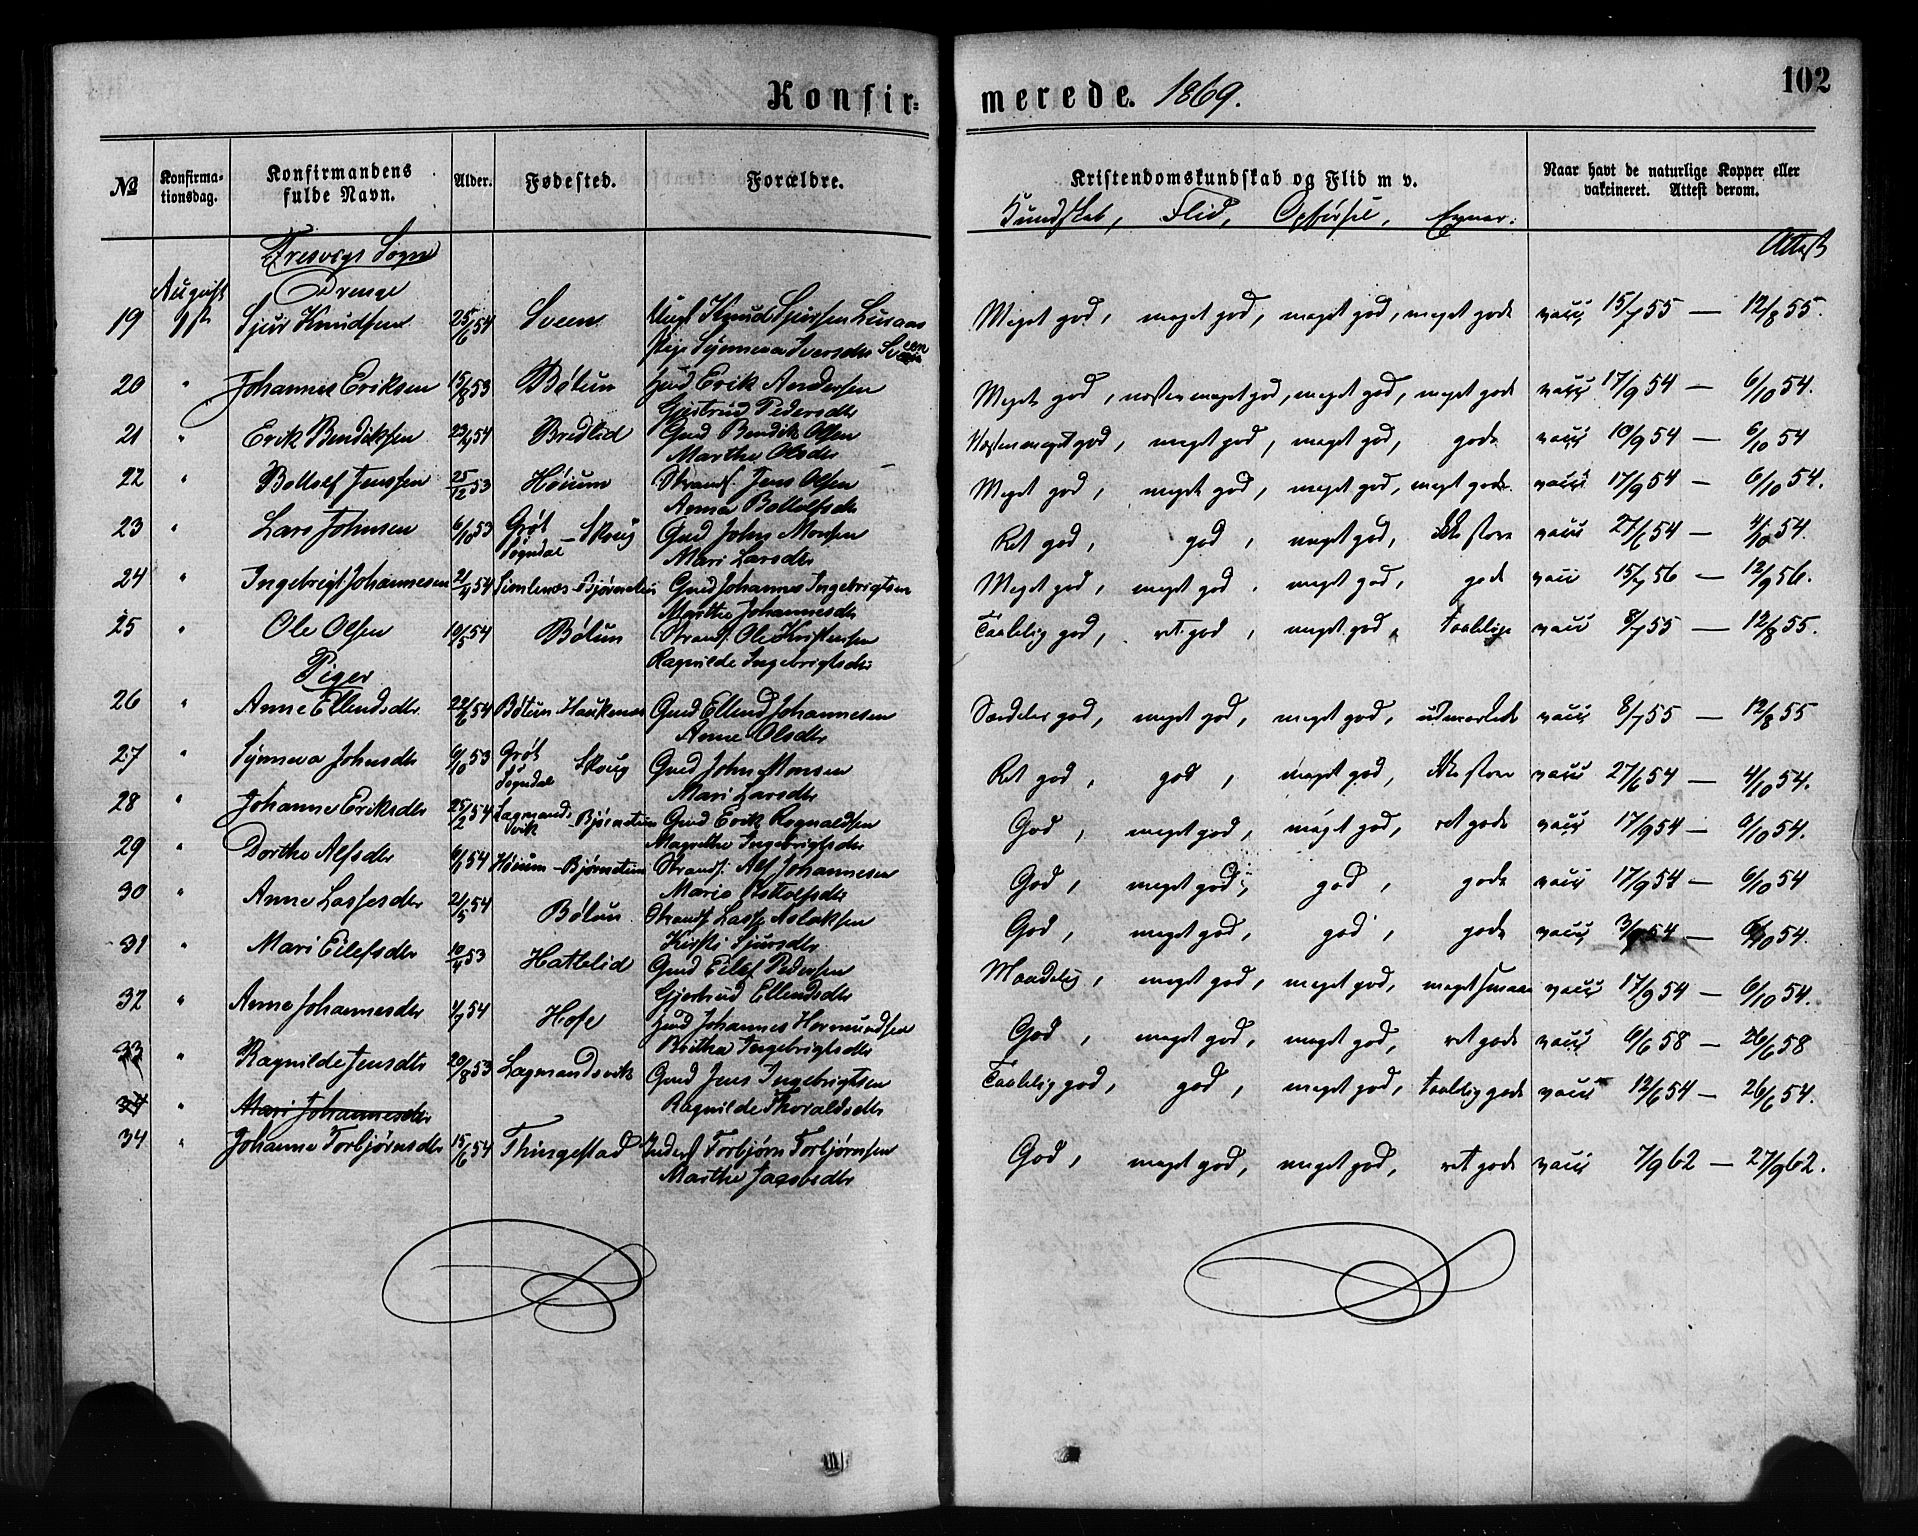 Konfir=
merede. 1869.
102
№ Konfirma-tionsdag. Konfirmandens fulde Navn. Alder. Fødested. Forældre. Kristendomskundskab og Flid m v. Naar havt de naturlige Kopper eller vakcineret. Attest derom.
Kundskab, Flid, Opførsel, Evner.
Fresvigs Sogn Attest
August Drenge
19 1ste Sjur Knudsen 25/6 54 Sveen Ungk Knud Sjursen Lusaas Meget god, meget god, meget god, meget gode vacc 15/7 55 — 12/8 55.
Pige Synneva Iversdtr Sveen
20 " Johannes Eriksen 15/8 53 Bøtun Gmd Erik Andersen Meget god, næsten meget god, meget god, meget gode vacc 17/9 54 — 6/10 54.
Gjertrud Pedersdtr
21 " Erik Bendiksen 23/4 54 Bredlid Gmd Bendik Olsen Næsten meget god, meget god, meget god, gode vacc 10/9 54 — 6/10 54
Marthe Olsdtr
22 " Bottolf Jenssen 25/12 53 Høium Strands. Jens Olsen Meget god, meget god, meget god, meget gode vacc 17/9 54 — 6/10 54.
Anna Bottolfsdtr
23 " Lars Johnsen 6/10 53 Grøt Sogndal - Skoug Gmd John Monsen Ret god, god, meget god, ikke store vacc 27/6 54 — 4/10 54.
Mari Larsdtr
24 " Ingebrigt Johannesen 21/4 54 Simlenæs-Bjørnetun Gmd Johannes Ingebrigtsen Meget god, meget god, meget god, gode vacc 15/7 56 — 12/9 56.
Marthe Johannesdtr
25 " Ole Olsen 19/5 54 Bøtun Strands. Ole Kristensen Taalelig god, ret god, meget god, taalelige vacc 8/7 55 — 12/8 55.
Ragnilde Ingebrigtsdtr
Piger
26 " Anne Ellendsdtr 22/6 54 Bøtun Haukenæs Gmd Ellend Johannesen Særdeles god, meget god, meget god, udmærkede vacc 8/7 55 — 12/8 55
Anne Olsdtr
27 " Synneva Johnsdtr 6/10 53 Grøt Sogndal Skoug Gmd John Monsen Ret god, god, meget god, ikke store vacc 27/6 54 — 4/10 54.
Mari Larsdtr
28 " Johanne Eriksdtr 25/2 54 Lagmandsvik - Bjørnetun Gmd Erik Rognaldsen God, meget god, meget god, ret gode vacc 17/9 54 — 6/10 54.
Magrethe Ingebrigtsdtr
29 " Dorthe Alfsdtr 6/4 54 Høium - Bjørnetun Strands. Alf Johannesen God, meget god, god, gode vacc 17/9 54 — 6/10 54
Marie Bottolfsdtr
30 " Anne Lassesdtr 21/5 54 Bøtun Strands. Lasse Aslaksen God, meget god, god, gode vacc 54 — 6/10 54.
Kirsti Sjursdtr
31 " Mari Eilefsdtr 10/4 53 Hattelid Gmd Eilef Pedersen Maadelig, meget god, meget god, meget smaa vacc 17/9 54 — 6/10 54.
Gjertrud Ellendsdtr
32 " Anne Johannesdtr 4/7 54 Hofe Gmd Johannes Hormundsen God, meget god, meget god, ret gode vacc 6/6 58 — 26/6 58
Britha Ingebrigtsdtr
33 " Ragnilde Jensdtr 20/8 53 Lagmandsvik Gmd Jens Ingebrigtsen Taalelig god, god, meget god, taalelig gode vacc 12/6 54 — 26/6 54.
Ragnilde Thoraldsdtr
34 " Mari Johannesdtr
34 " Johanne Torbjørnsdtr 15/6 54 Thingestad Inderst Torbjørn Torbjørnsen God, meget god, meget god, ret gode vacc 7/9 62 — 27/9 62.
Marthe Jacobsdtr